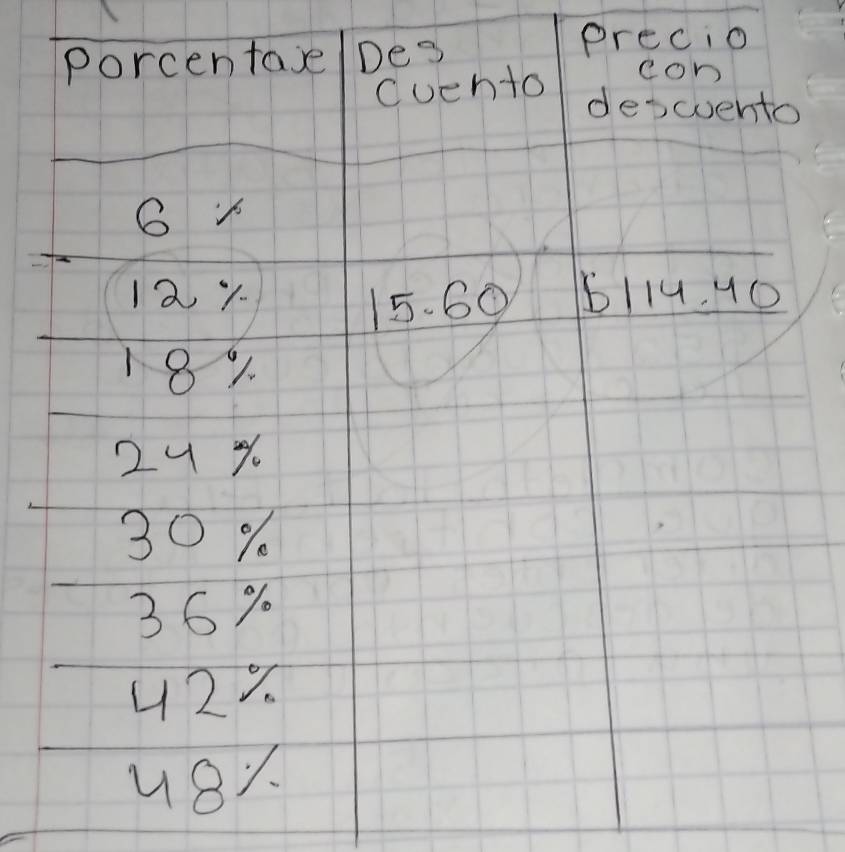 Porcentaje Des Precio
cuento con
descuento
6 %
12 % 15.60 $114.40
18 %
24 %
30 %
36 %
42 %
48 %